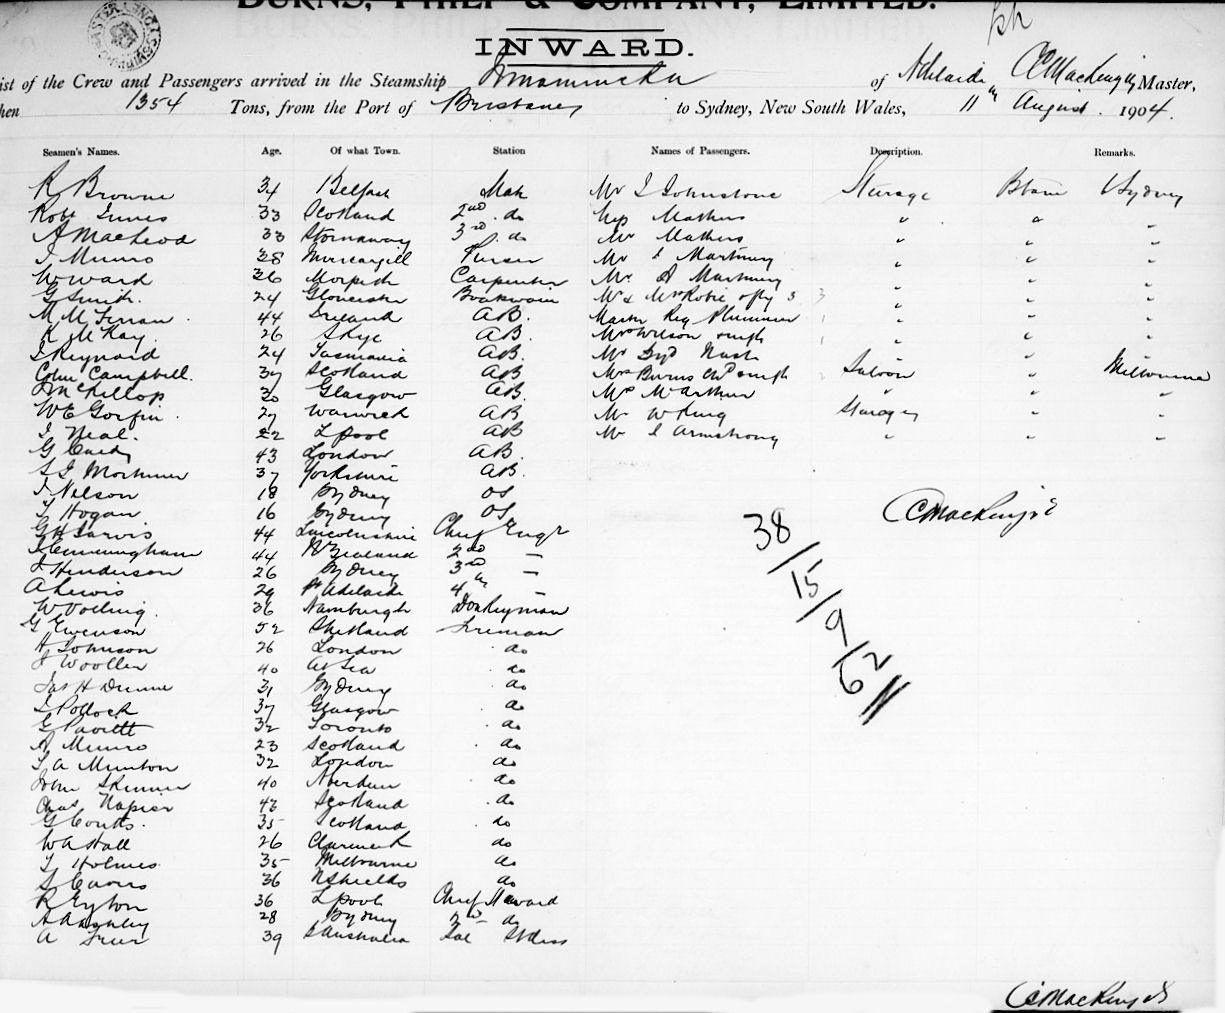 BURNS, PHILP & COMPANY, LIMITED.
INWARD.
ist of the Crew and Passengers arrived in the Steamship Innamincka of Adelaide C MacKenzie Master,
hen 1354 Tons, from the Port of Brisbane to Sydney, New South Wales, 11th August 1904.
Seamen's Names. Age. Of what Town. Station Names of Passengers. Description. Remarks.
R Browne 34 Belfast Mate Mr J Johnstone Steerage Bbane Sydney
Robt Innes 33 Scotland 2nd do Mathers " " "
A MacLeod 33 Stornaway 3rd do Mr Mathers " " "
J Munro 38 Invercargill Purser Mr " " "
W Ward 36 Morpeth Carpenter Mr A " " "
G Smith 24 Gloucester Boatswain Mr & Mrs Robie 3 " " "
M M 44 Ireland AB. Master Reg Plummer " " "
K McKay 26 Skye AB. Mrs Wilson " " "
J Reynard 24 Tasmania AB. Mr Nash " " "
Colin Campbell. 37 Scotland AB Mrs Burns Saloon " Melbourne
McKillop 30 Glasgow AB. McArthur " "
W E Gorfin 27 Warwick AB Mr W King Steerage " "
J Neal. 22 Lpool AB Mr J Armstrong " " "
G 43 London AB.
Mortimer 37 Yorkshire AB.
J Nelson 18 Sydney OS
T Hogan 16 Sydney OS
G H Jarvis 44 Lincolnshire Chief Engr
J Cunningham 44 N Zealand 2nd "
J Henderson 26 Sydney 3rd "
A Lewis 29 Pt Adelaide 4th "
W 36 Donkeyman
G Evenson 52 Shetland Fireman
H Johnson 26 London do
J Woollen 40 At Sea do
Jas H Dunne 31 Sydney do
J Pollock 37 Glasgow do
G 32 Toronto do
A Munro 23 Scotland do
A Munton 32 London do
John Skinner 40 Aberdeen do
Chas Napier 42 Scotland do
G Coutts 35 Scotland do
W A Hall 26 do
T Holmes 35 Melbourne do
36 N Shields do
R Eyton 36 Lpool Chief Steward
A 28 Sydney 2nd do
A 39 S Australia Sal Stdess
C MacKenzie
38/15/9/62
C MacKenzie